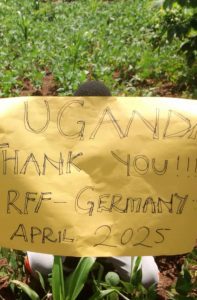 UGANDA
THANK YOU!!!
RFF-GERMANY-
APRIL 2025